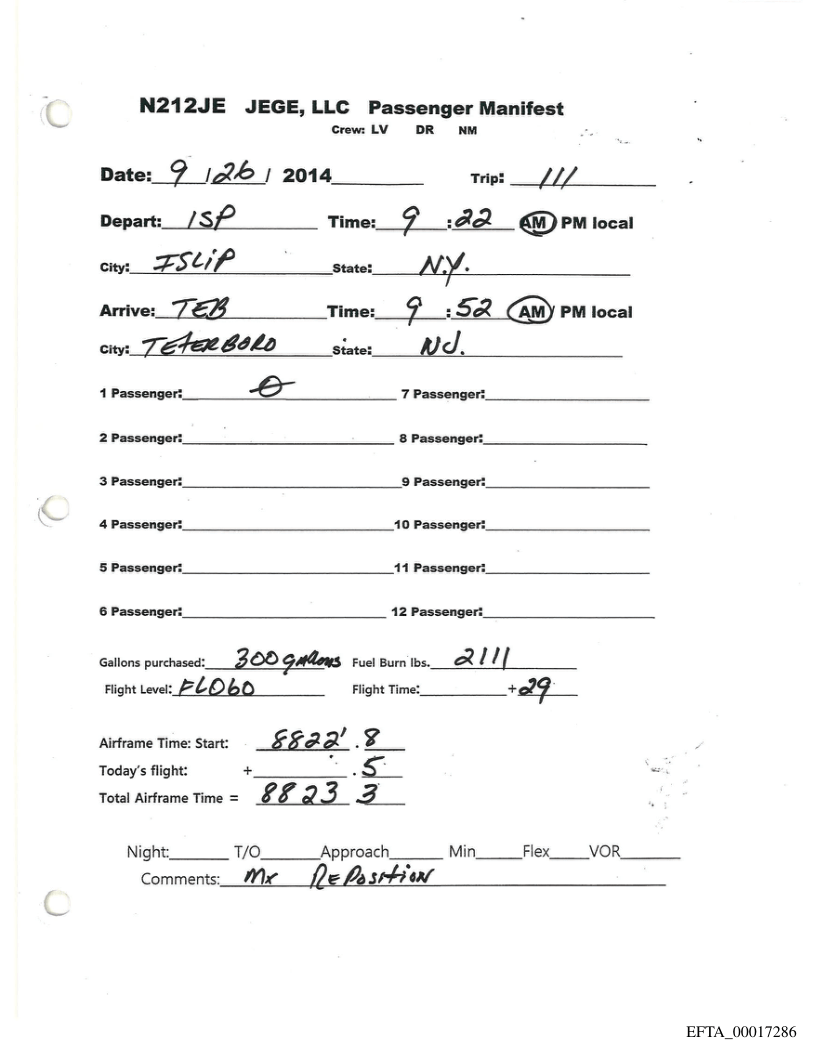 N212JE JEGE, LLC Passenger Manifest
Crew: LV DR NM
Date: 9 / 26 / 2014 Trip: 111
Depart: ISP Time: 9 : 22 AM PM local
City: ISLiP State: N.Y.
Arrive: TEB Time: 9 : 52 AM/ PM local
City: TETERBORO State: NJ.
1 Passenger: 0 7 Passenger:
2 Passenger: 8 Passenger:
3 Passenger: 9 Passenger:
4 Passenger: 10 Passenger:
5 Passenger: 11 Passenger:
6 Passenger: 12 Passenger:
Gallons purchased: 300 gallons Fuel Burn lbs. 2111
Flight Level: FL060 Flight Time: +29
Airframe Time: Start: 8822 . 8
Today's flight: + . 5
Total Airframe Time = 8823 3
Night: T/O Approach Min Flex VOR
Comments: Mx RePosition
EFTA_00017286